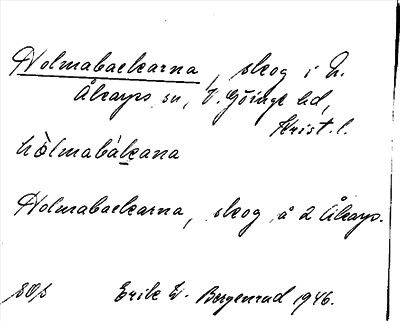 Holmabackarna, skog i N.
Åkarps sn, V. Göinge hd,
Krist. l.
hòlmabàkana
Holmabackarna, skog å 2 Åkarp.
Erik W. Bergenrud 1946.